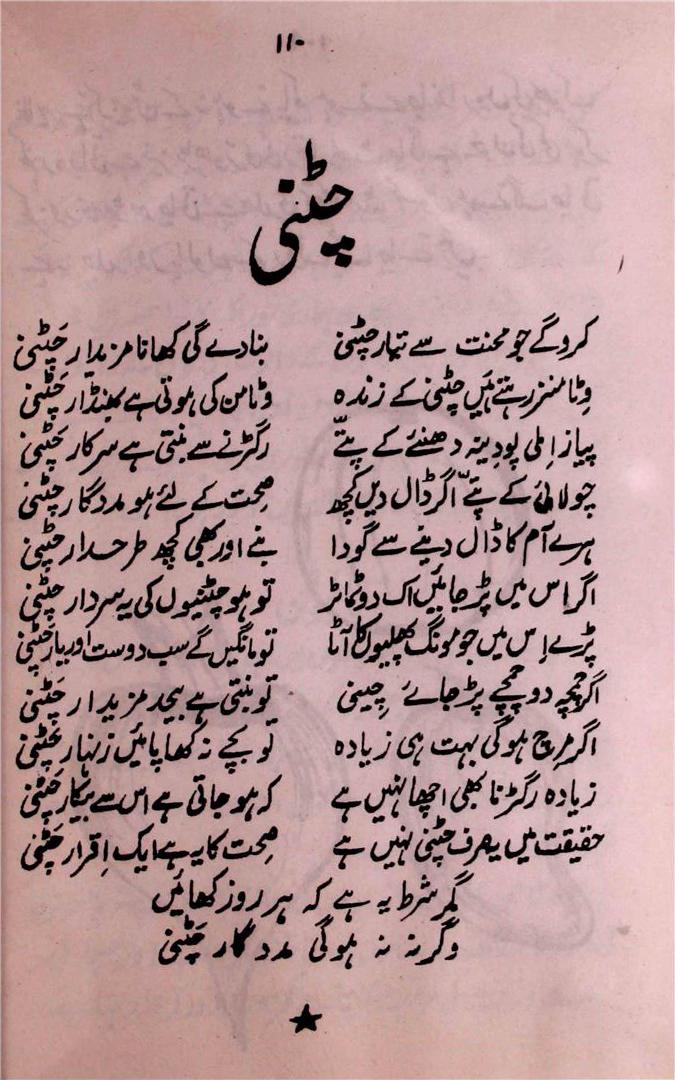 ۱۱۰
چٹنی
کرو گے جو محنت سے تیار چٹنی بنا دے گی کھانا مزیدار چٹنی
وٹامنز رہتے ہیں چٹنی کے زندہ وٹامن کی ہوتی ہے بھنڈار چٹنی
پیاز اِملی پودینہ دھنئے کے پتّے رگڑنے سے بنتی ہے سرکار چٹنی
چولائی کے پتّے اگر ڈال دیں کچھ صحت کے لئے ہو مددگار چٹنی
ہرے آم کا ڈال دینے سے گودا بنے اور بھی کچھ طرحدار چٹنی
اگر اِس میں پڑ جائیں اک دو ٹماٹر تو ہو چٹنیوں کی یہ سردار چٹنی
پڑے اِس میں جو مونگ پھلیوں کا آٹا تو مانگیں گے سب دوست اور یار چٹنی
اگر چمچہ دو چمچے پڑ جائے چینی تو بنتی ہے بیحد مزیدار چٹنی
اگر مرچ ہوگی بہت ہی زیادہ تو بچے نہ کھا پائیں زنہار چٹنی
زیادہ رگڑنا بھی اچھا نہیں ہے کہ ہو جاتی ہے اس سے بیکار چٹنی
حقیقت میں یہ صرف چٹنی نہیں ہے صحت کا یہ ہے ایک اِقرار چٹنی
مگر شرط یہ ہے کہ ہر روز کھائیں
وگرنہ نہ ہوگی مددگار چٹنی